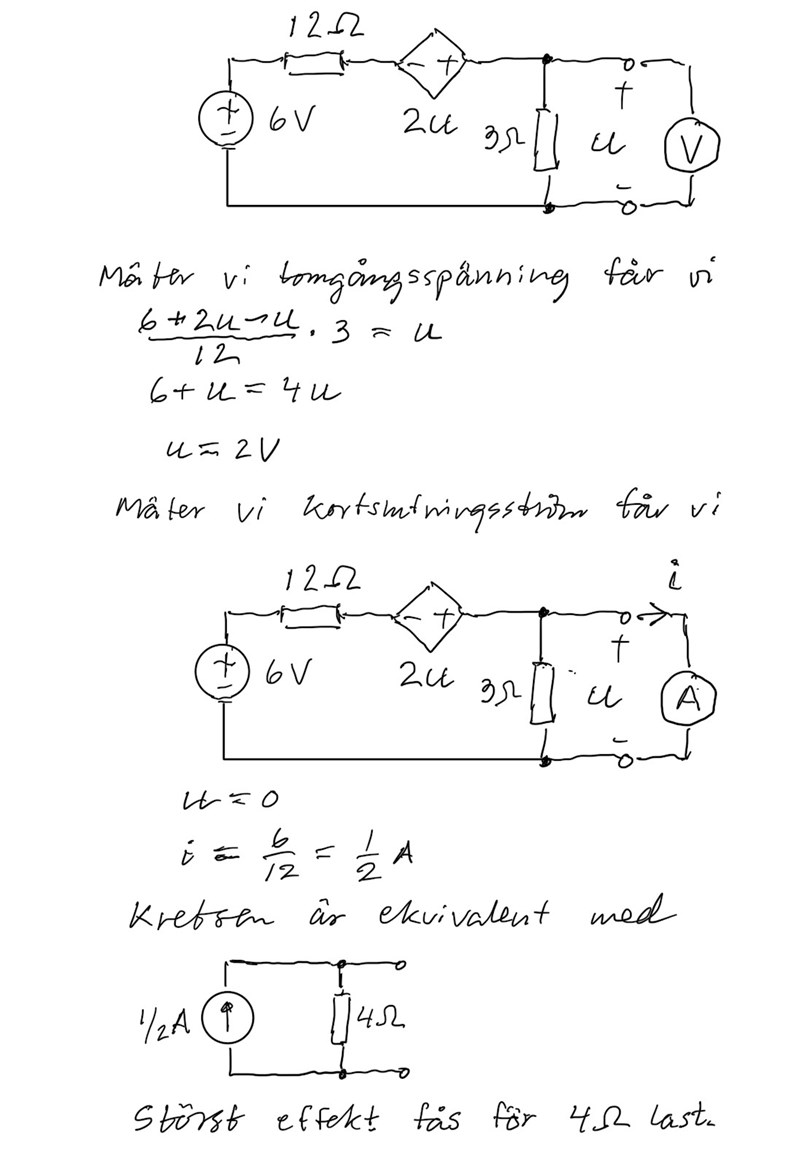 12Ω
- +
+
-
6V
2u
3Ω
+
u
-
V
Mäter vi tomgångsspänning får vi
6+2u-u/12 · 3 = u
6+u=4u
u=2V
Mäter vi kortslutningsström får vi
12Ω
i
- +
+
-
6V
2u
3Ω
+
u
-
A
u=0
i = 6/12 = 1/2 A
Kretsen är ekvivalent med
1/2A
4Ω
Störst effekt fås för 4Ω last.